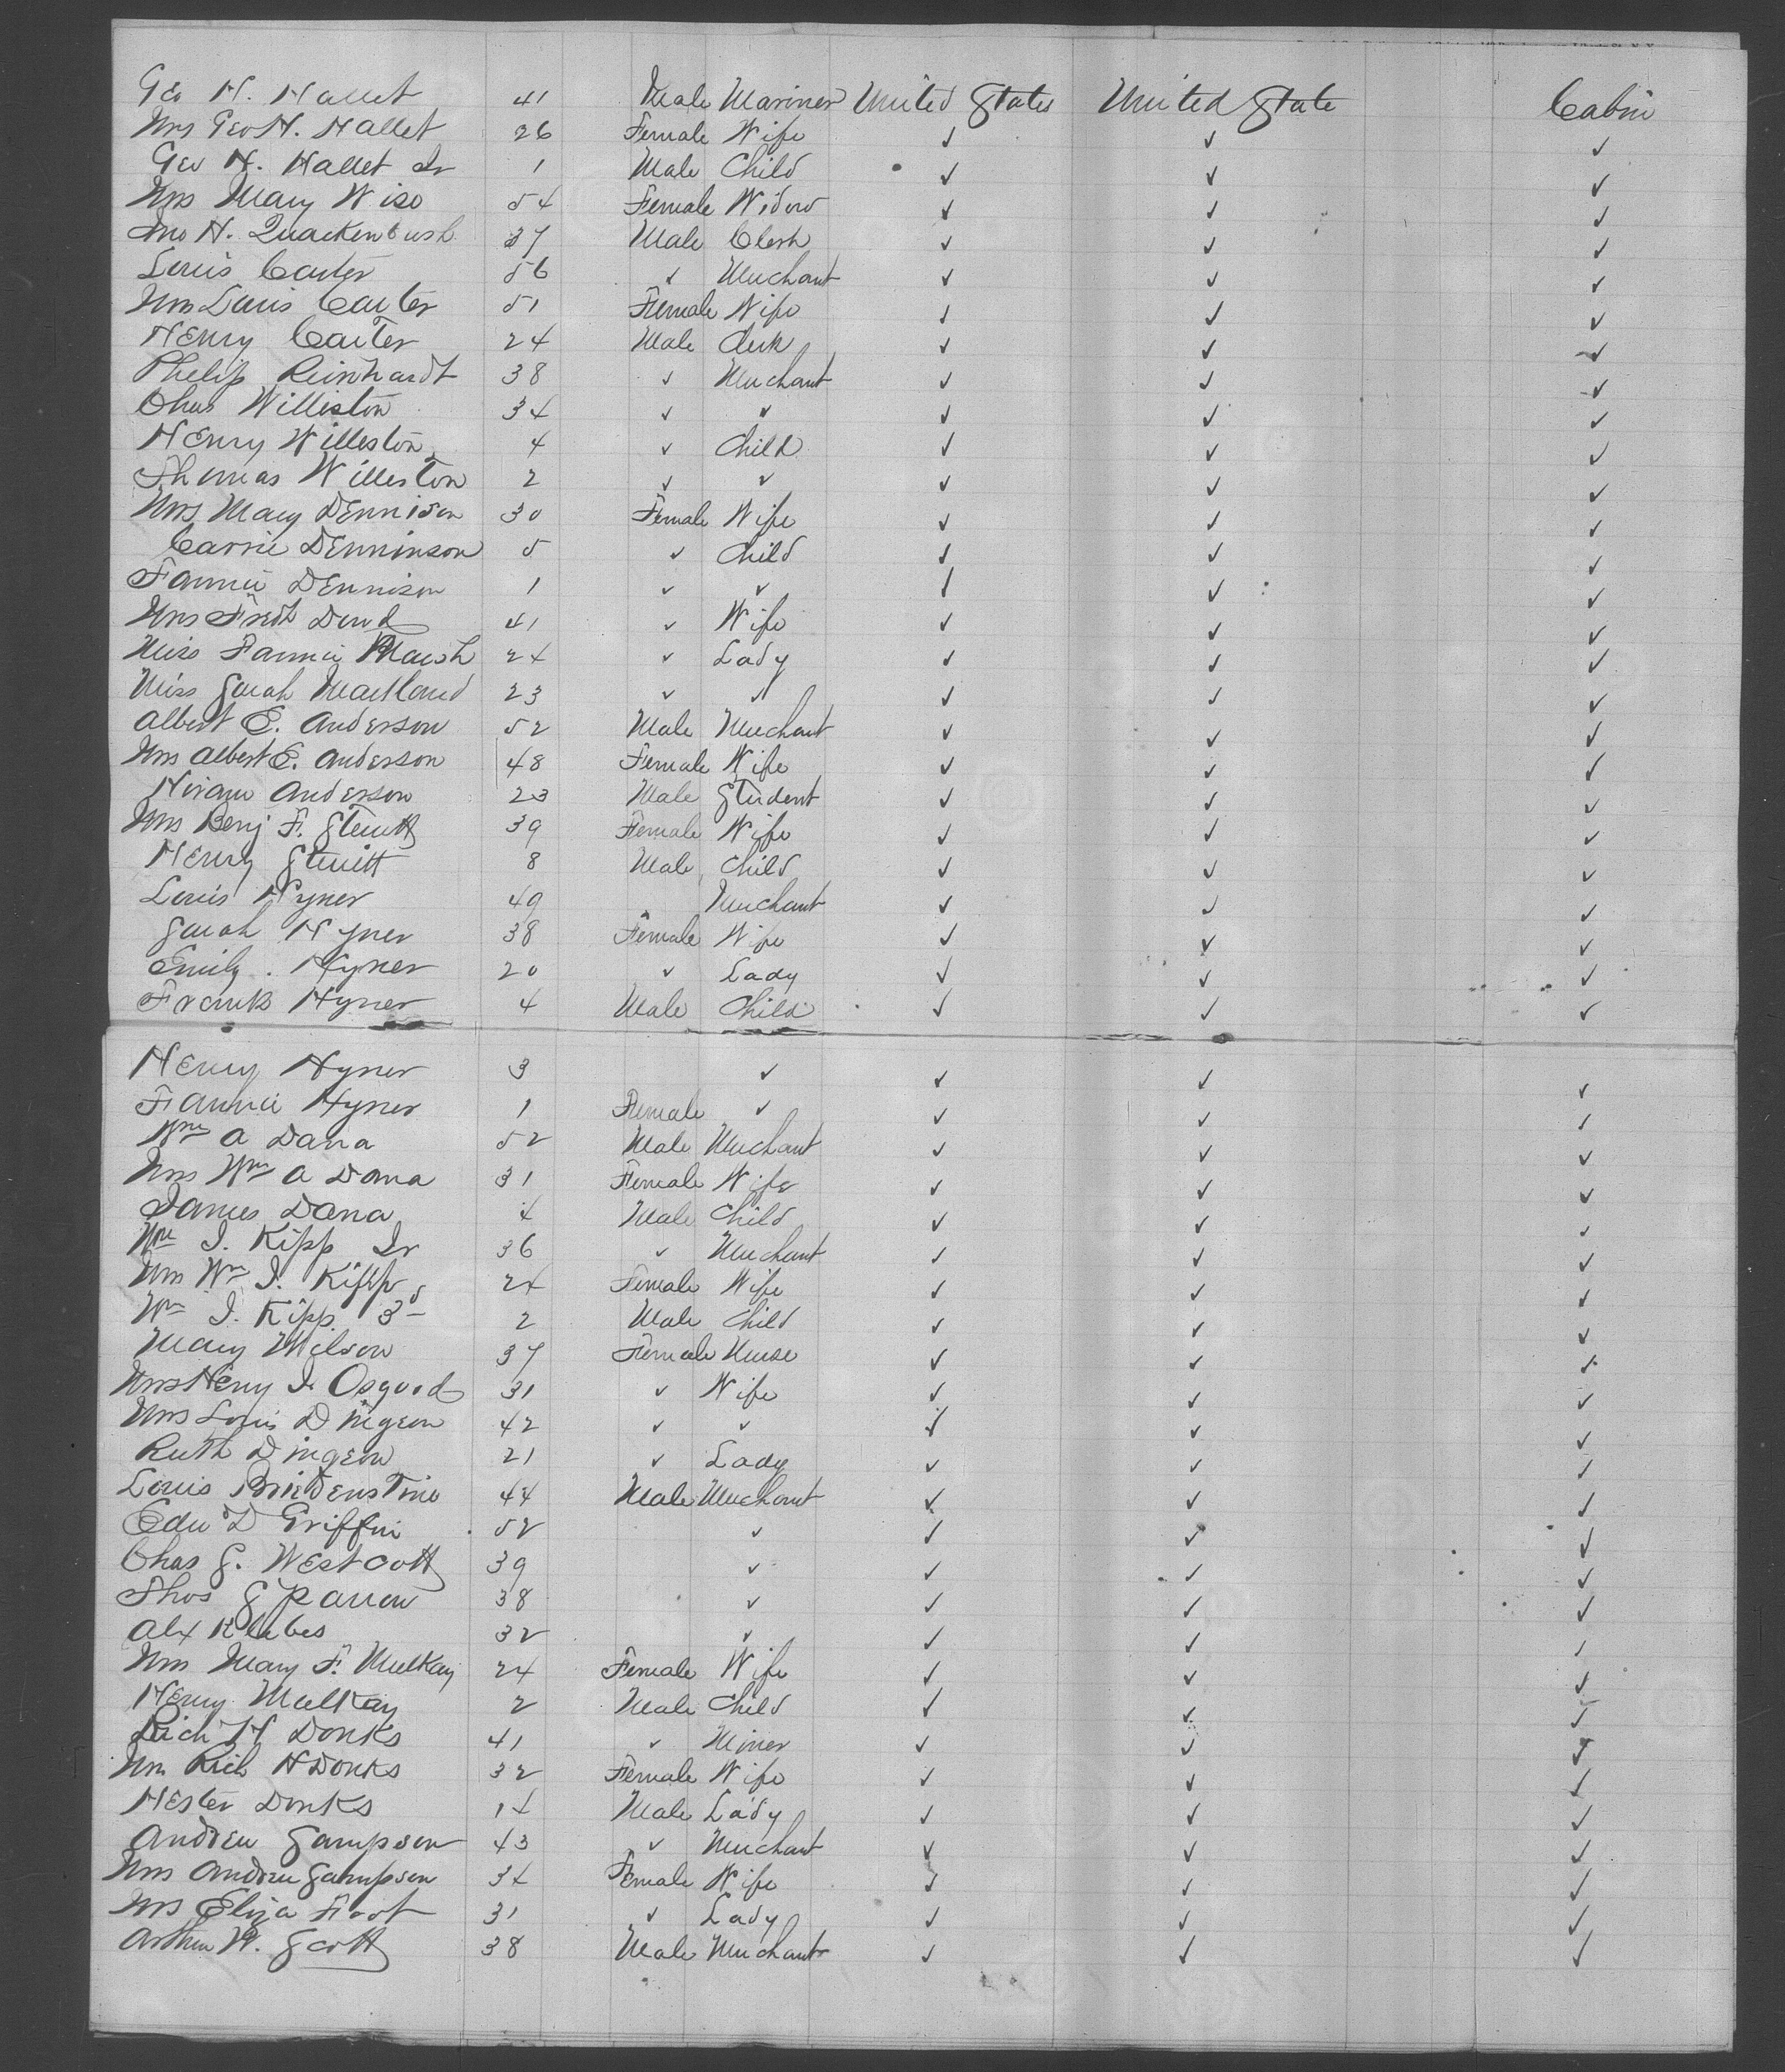 Geo H. Hallet 41 Male Mariner United States United State Cabin
Mrs Geo H. Hallet 26 Female Wife ✓ ✓ ✓
Geo H. Hallet Jr 1 Male Child ✓ ✓ ✓
Mrs Mary Wiso 54 Female Widow ✓ ✓ ✓
Jno H. Quackenbush 37 Male Clerk ✓ ✓ ✓
Louis Carter 56 ✓ Merchant ✓ ✓ ✓
Mrs Louis Carter 51 Female Wife ✓ ✓ ✓
Henry Carter 24 Male Clerk ✓ ✓ ✓
Philip Reinhardt 38 ✓ Merchant ✓ ✓ ✓
Chas Williston 34 ✓ ✓ ✓ ✓ ✓
Henry Williston 4 ✓ Child ✓ ✓ ✓
Thomas Williston 2 ✓ ✓ ✓ ✓ ✓
Mrs Mary Dennison 30 Female Wife ✓ ✓ ✓
Carrie Denninson 5 ✓ Child ✓ ✓ ✓
Fannie Dennison 1 ✓ ✓ ✓ ✓ ✓
Mrs Fredk 41 ✓ Wife ✓ ✓ ✓
Miss Fannie Marsh 24 ✓ Lady ✓ ✓ ✓
Miss Sarah Maitland 23 ✓ ✓ ✓ ✓ ✓
Albert E. Anderson 52 Male Merchant ✓ ✓ ✓
Mrs Albert E. Anderson 48 Female Wife ✓ ✓ ✓
Hiram Anderson 23 Male Student ✓ ✓ ✓
Mrs Benj F. 39 Female Wife ✓ ✓ ✓
Henry 8 Male Child ✓ ✓ ✓
Louis Hyner 49 Merchant ✓ ✓ ✓
Sarah Hyner 38 Female Wife ✓ ✓ ✓
Emily . Hyner 20 ✓ Lady ✓ ✓ ✓
Frank Hyner 4 Male Child ✓ ✓ ✓
Henry Hyner 3 ✓ ✓ ✓ ✓
Fannie Hyner 1 Female ✓ ✓ ✓ ✓
Wm A Dana 52 Male Merchant ✓ ✓ ✓
Mrs Wm A Dana 31 Female Wife ✓ ✓ ✓
James Dana 4 Male Child ✓ ✓ ✓
Wm I. Kipp Jr 36 ✓ Merchant ✓ ✓ ✓
Mrs Wm I. Kipp 24 Female Wife ✓ ✓ ✓
Wm I. Kipp. 3d 2 Male Child ✓ ✓ ✓
Mary Wilson 37 Female Nurse ✓ ✓ ✓
Mrs Henry I. Osgood 31 ✓ Wife ✓ ✓ ✓
Mrs Louis Dingeon 42 ✓ ✓ ✓ ✓ ✓
Ruth Dingeon 21 ✓ Lady ✓ ✓ ✓
Louis Bridenstine 44 Male Merchant ✓ ✓ ✓
Edw D Griffin 52 ✓ ✓ ✓ ✓
Chas S. Westcott 39 ✓ ✓ ✓ ✓
Thos 38 ✓ ✓ ✓ ✓
Alex Klebes 32 ✓ ✓ ✓ ✓
Mrs Mary F. Mulkay 24 Female Wife ✓ ✓ ✓
Henry Mulkay 2 Male Child ✓ ✓ ✓
Rich H Donks 41 ✓ Miner ✓ ✓ ✓
Mrs Rich H Donks 32 Female Wife ✓ ✓ ✓
Hester Donks 14 Male Lady ✓ ✓ ✓
Andrew Sampson 43 ✓ Merchant ✓ ✓ ✓
Mrs Andrew Sampson 34 Female Wife ✓ ✓ ✓
Mrs Eliza Foot 31 ✓ Lady ✓ ✓ ✓
Arthur W. Scott 38 Male Merchant ✓ ✓ ✓